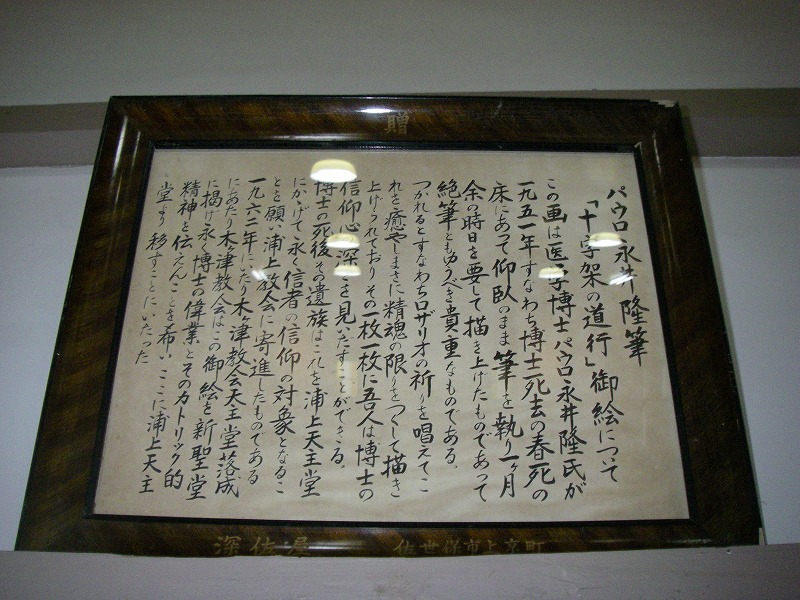 贈
パウロ永井隆筆
「十字架の道行」御絵について
この画は医学博士パウロ永井隆氏が
一九五一年すなわち博士死去の春死の
床にあって仰臥のまま筆を執り一ヶ月
余の時日を要して描き上げたものであって
絶筆ともゆうべき貴重なものである.
つかれるとすなわちロザリオの祈りを唱えてこ
れを癒やしまさに精魂の限りをつくして描き
上げられておりその一枚一枚に吾人は博士の
信仰心の深さを見いだすことができる.
博士の死後その遺族はこれを浦上天主堂
にかゝげて永く信者の信仰の対象となるこ
とを願い浦上教会に寄進したものである
一九六二年にいたり木ヶ津教会天主堂落成
にあたり木ヶ津教会はこの御絵を新聖堂
に掲げ永く博士の偉業とそのカトリック的
精神を伝えんことを希い ここに浦上天主
堂より移すことにいたった
深佐屋 佐世保市上京町